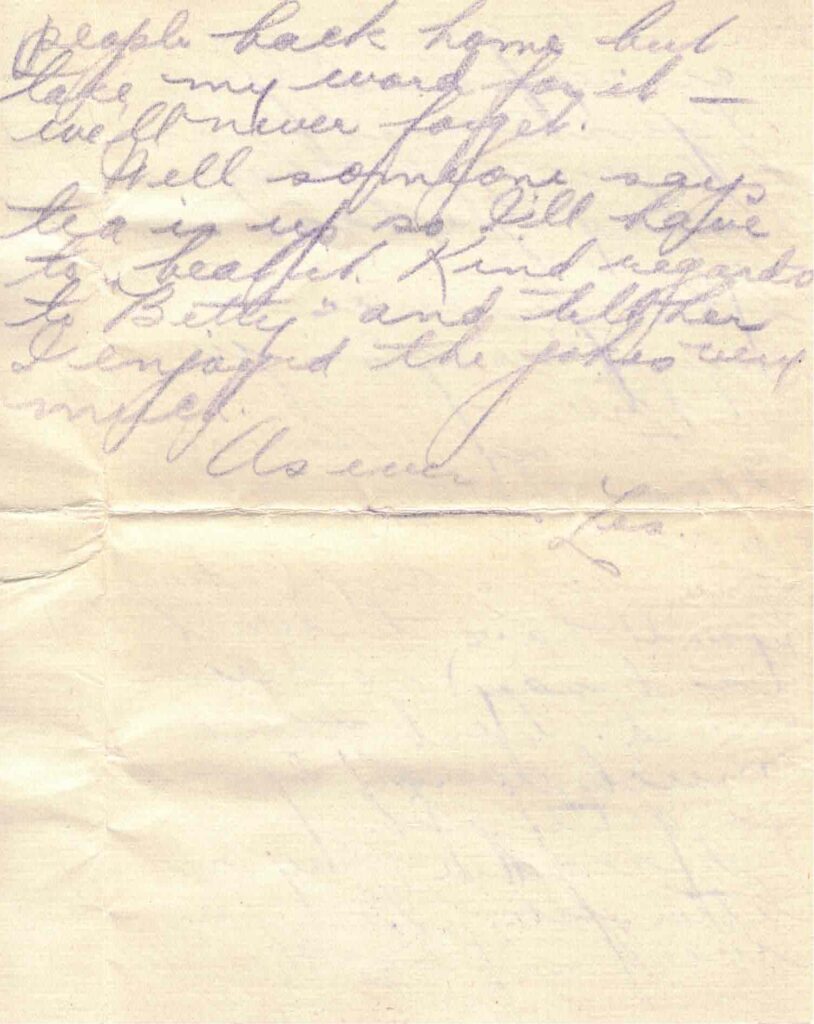 people back home but
take my word for it —
we'll never forget.
Well someone says
tea is up so I'll have
to "beat it". Kind regards
to "Betty" and tell her
I enjoyed the jokes very
much.
As ever
Les.